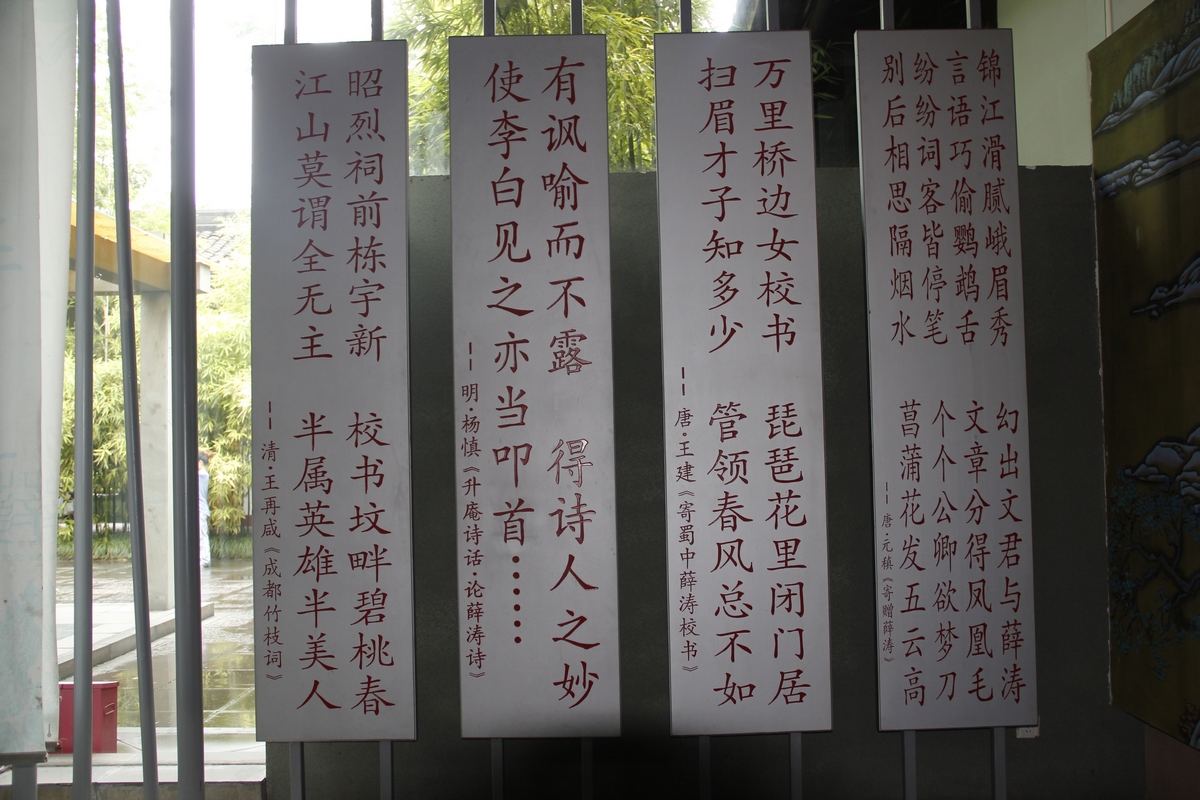 锦江滑腻峨眉秀 幻出文君与薛涛
言语巧偷鹦鹉舌 文章分得凤凰毛
纷纷词客皆停笔 个个公卿欲梦刀
别后相思隔烟水 菖蒲花发五云高
--唐·元稹《寄赠薛涛》
万里桥边女校书 琵琶花里闭门居
扫眉才子知多少 管领春风总不如
--唐·王建《寄蜀中薛涛校书》
有讽喻而不露 得诗人之妙
使李白见之亦当叩首……
--明·杨慎《升庵诗话·论薛涛诗》
昭烈祠前栋宇新 校书坟畔碧桃春
江山莫谓全无主 半属英雄半美人
--清·王再咸《成都竹枝词》